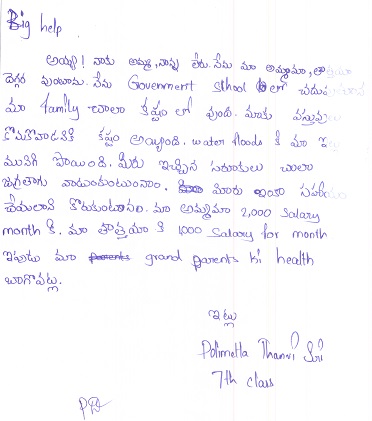 Big help
అయ్యా! నాకు అమ్మ, నాన్న లేరు. నేను మా అమ్మమ్మ, తాతయ్య
దెగ్గర వుంటాను. నేను Government School లో చదువు
మా family చాలా కష్టం లో వుంది. మాకు వస్తువులు
కొనుకోవాడనికి కష్టం అయ్యింది. water floods కి మా
మునిగి పోయింది. మీరు ఇచ్చిన సరుకులు చాలా
జాగ్రత్తాగా వాడుకుంటున్నాం. మీరు ఇంకా సహాయం
చేయలాని కోరుకుంటున్నా. మా అమ్మమా 2,000 Salary
month కి. మా తాత్తయా కి 1000 Salary for month
ఇపుడు మా grand parents ki health
బాగోవట్ల.
ఇట్లు
Polimetla Thanvi Sri
7th class